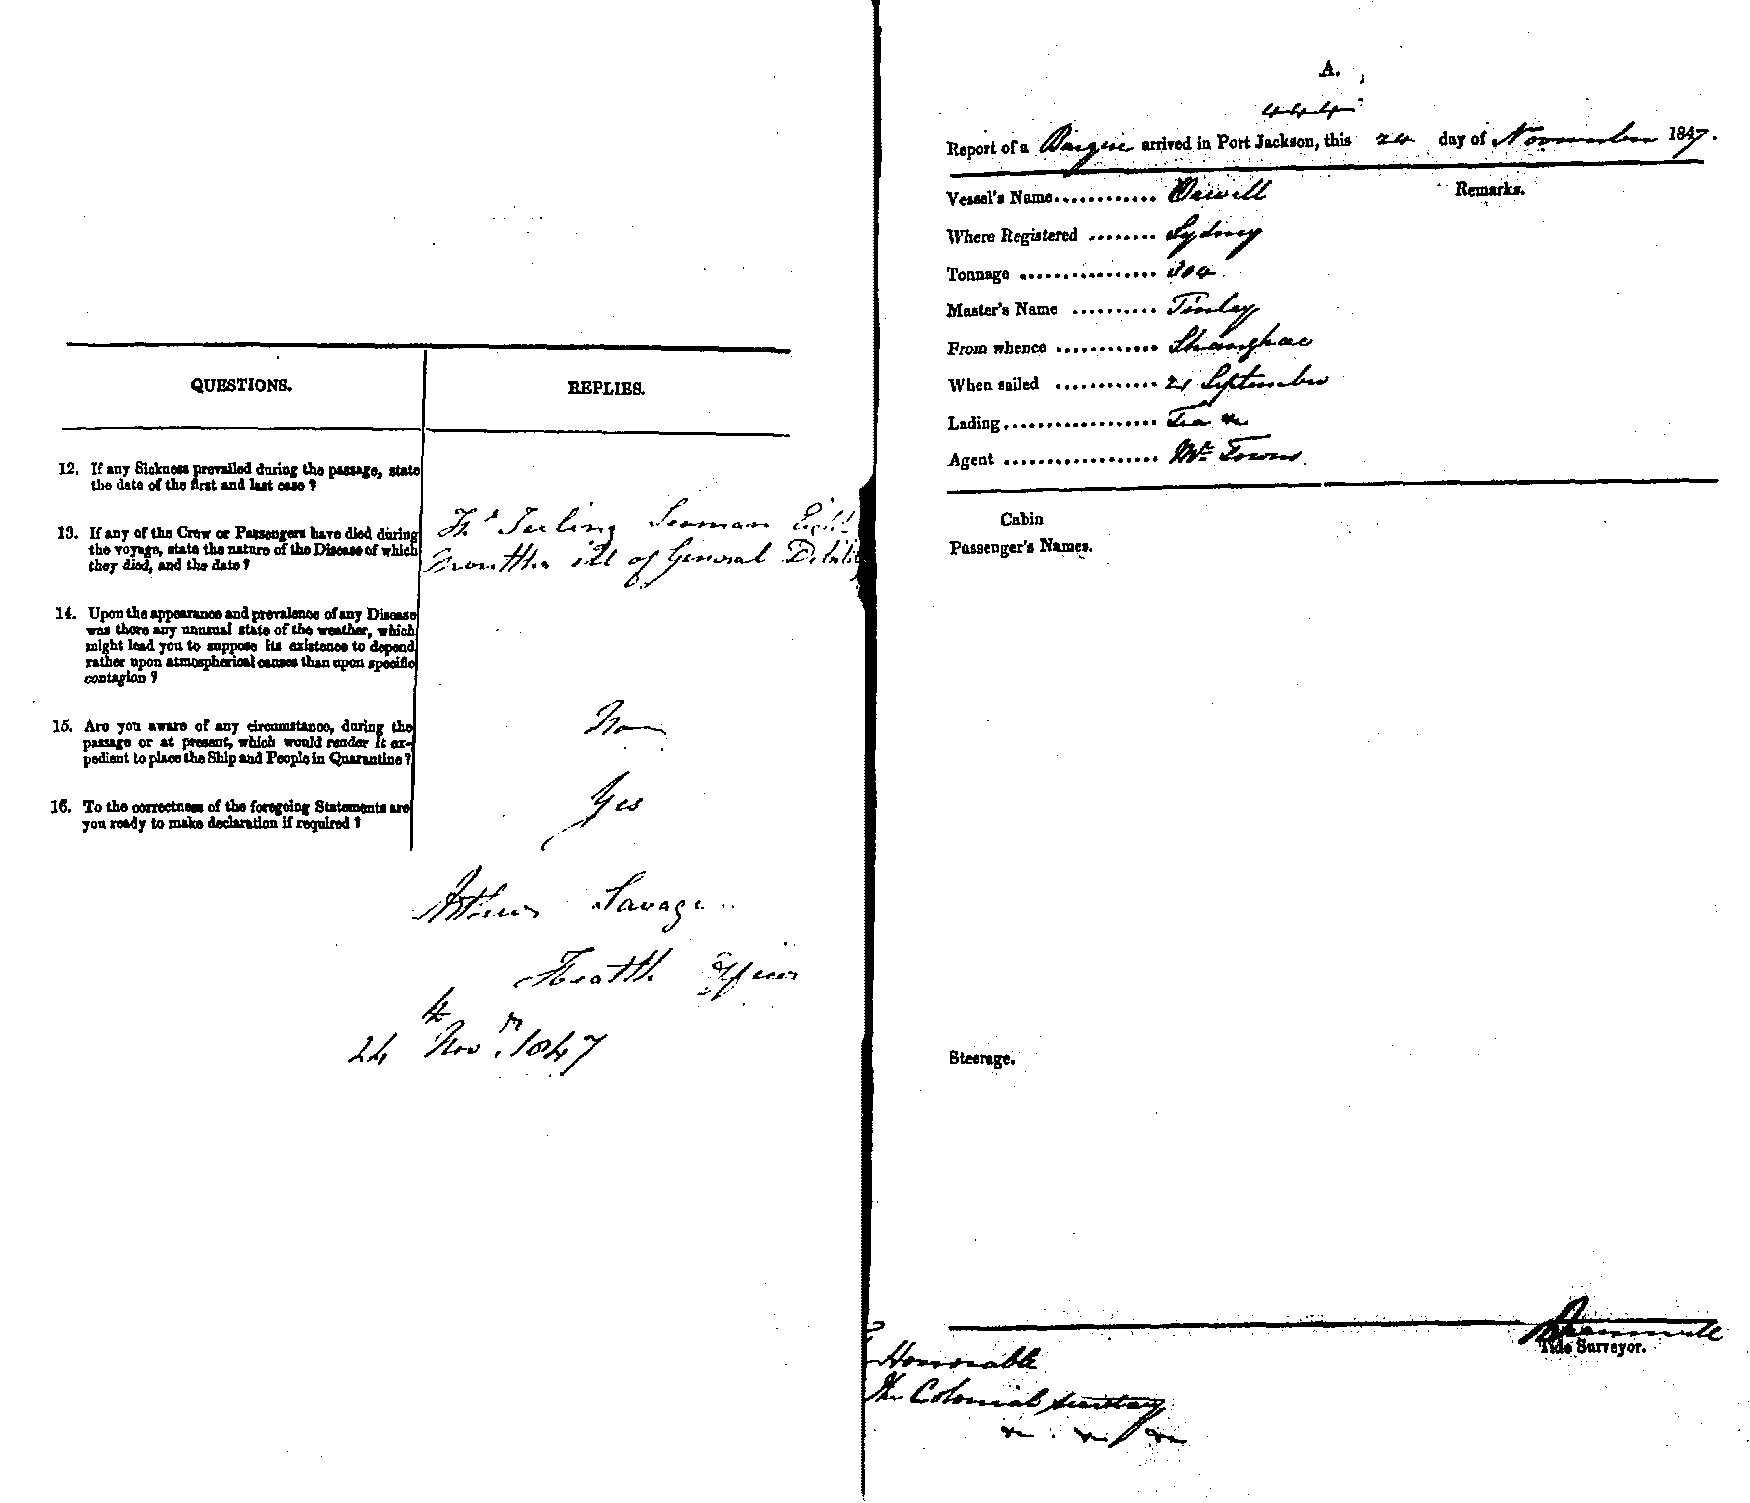 QUESTIONS.
REPLIES.
12. If any Sickness prevailed during the passage, state
the date of the first and last case ?
13. If any of the Crew or Passengers have died during
the voyage, state the nature of the Disease of which
they died, and the date ?
Seaman Eight
months ill of General Debility
14. Upon the appearance and prevalence of any Disease
was there any unusual state of the weather, which
might lead you to suppose its existence to depend
rather upon atmospherical causes than upon specific
contagion ?
15. Are you aware of any circumstance, during the
passage or at present, which would render it ex-
pedient to place the Ship and People in Quarantine ?
No
16. To the correctness of the foregoing Statements are
you ready to make declaration if required ?
Yes
Arthur Savage
Health Officer
24 Novr. 1847
A.
444
Report of a Barque arrived in Port Jackson, this 24 day of November 1847.
Vessel's Name............ Orwell
Remarks.
Where Registered ........ Sydney
Tonnage ................ 304
Master's Name .......... Tinley
From whence ............ Shanghae
When sailed ............ 21 September
Lading.................. Tea &c
Agent .................. Mr. Towns.
Cabin
Passenger's Names.
Steerage.
Tide Surveyor.
Honorable
The Colonial Secretary
&c. &c. &c